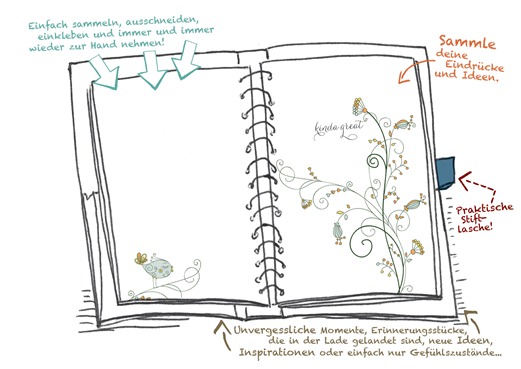 Einfach sammeln, ausschneiden,
einkleben und immer und immer
wieder zur Hand nehmen!
Sammle
deine
Eindrücke
und Ideen.
kinda great
Praktische
Stift-
lasche!
Unvergessliche Momente, Erinnerungsstücke,
die in der Lade gelandet sind, neue Ideen,
Inspirationen oder einfach nur Gefühlszustände...